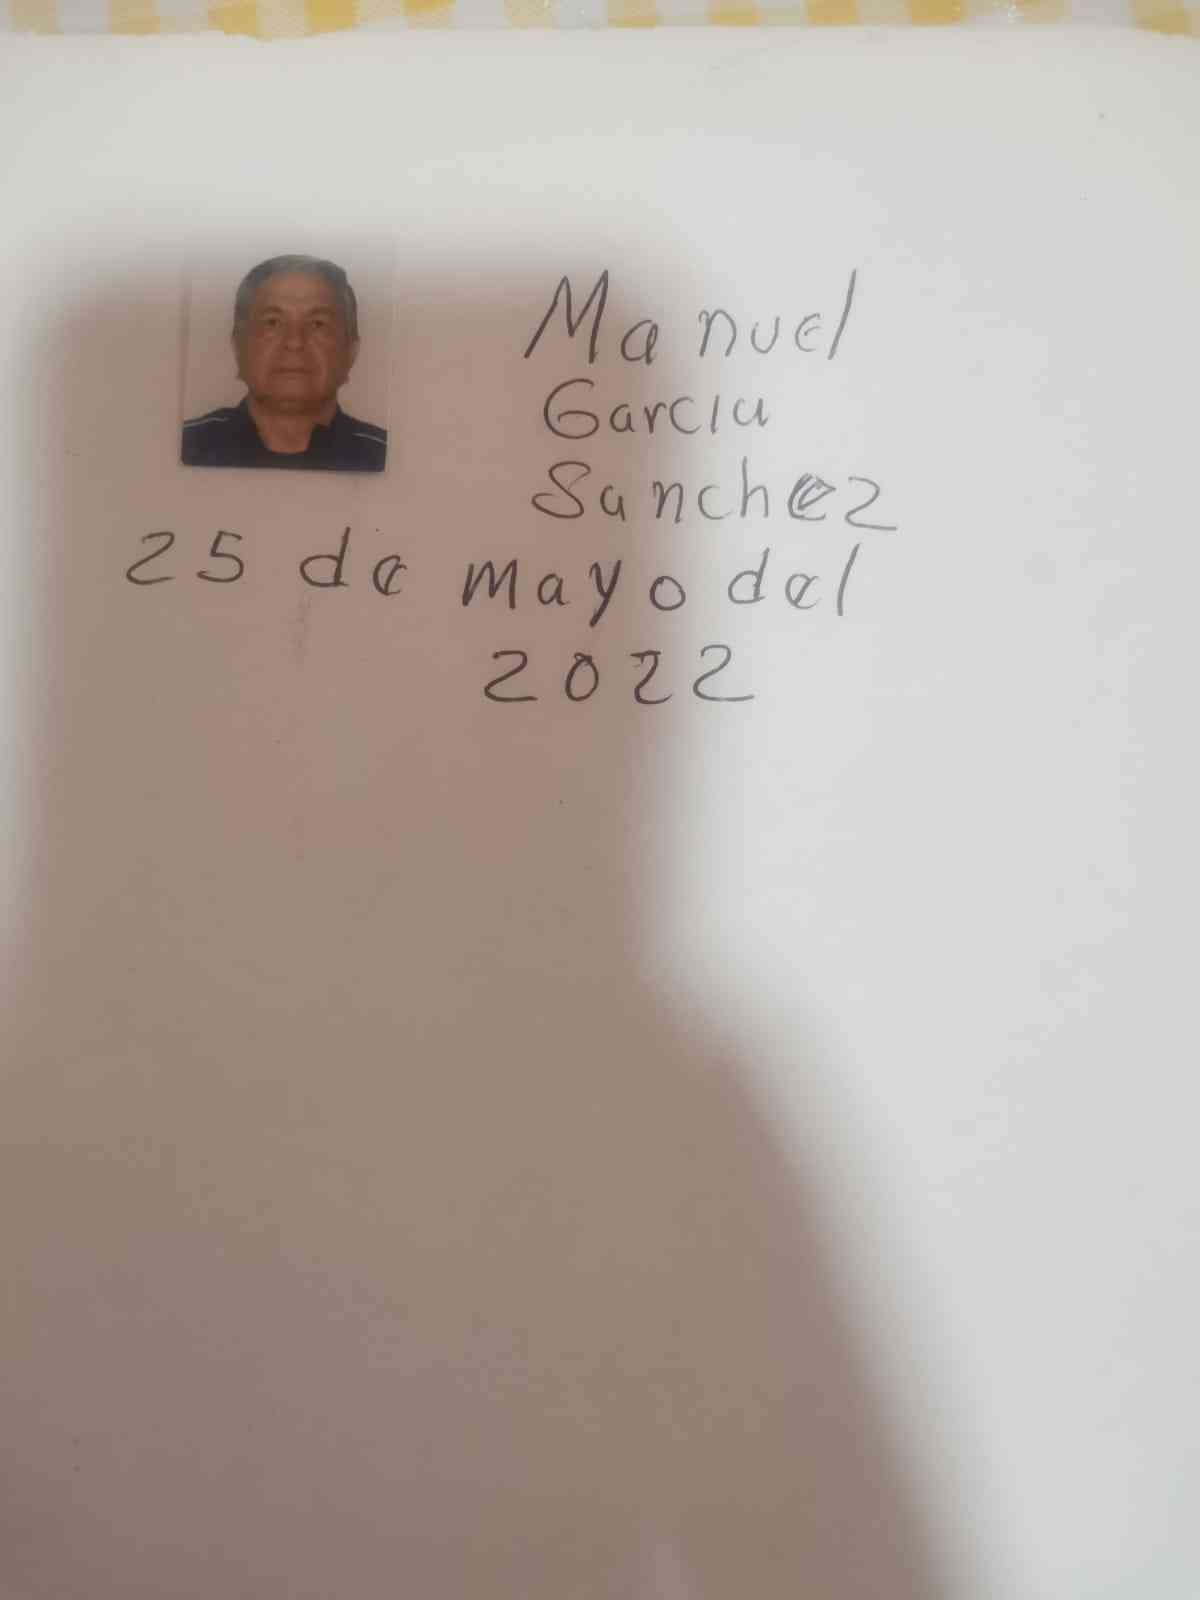 Manuel
Garcia
Sanchez
25 de mayo del
2022